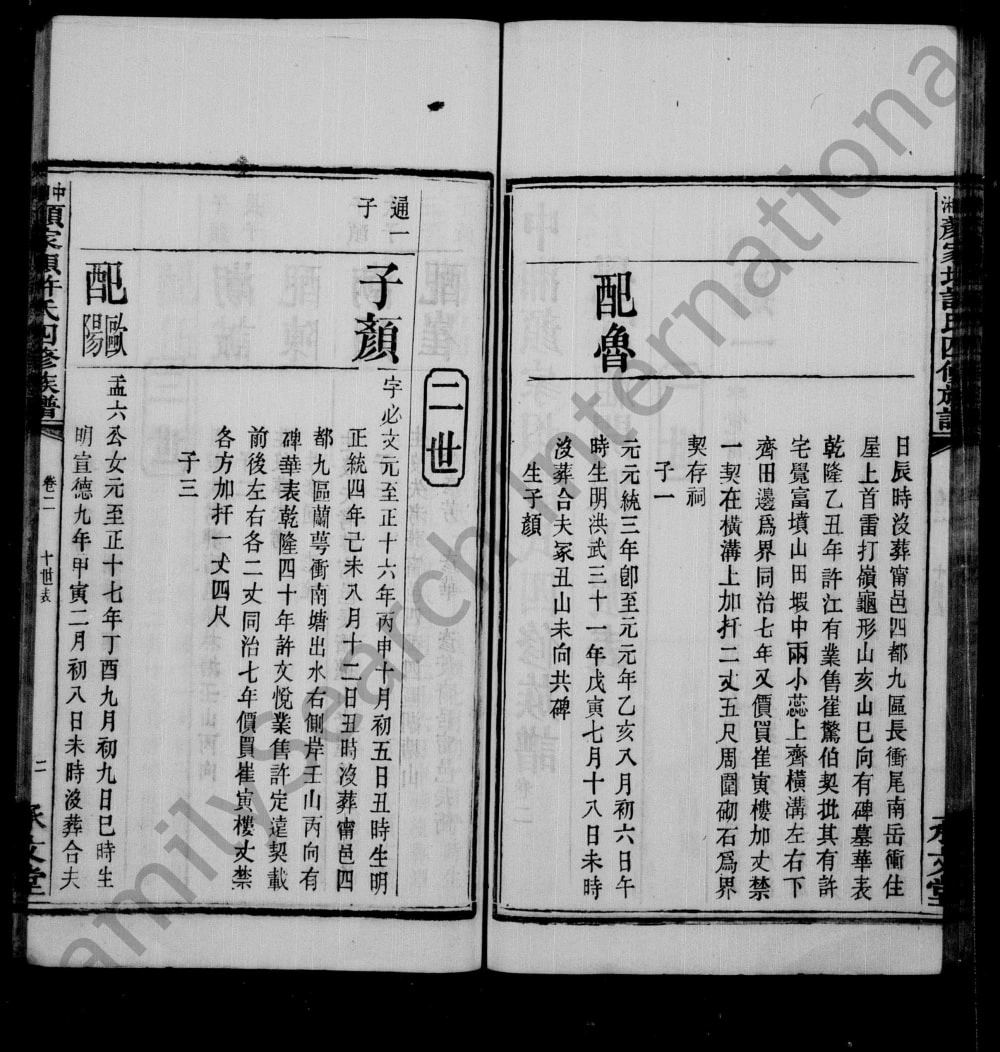 日辰時沒葬甯邑四都九區長衝尾南岳衝住
屋上首雷打嶺龜形山亥山巳向有碑墓華表
乾隆乙丑年許江有業售崔驚伯契批其有許
宅覺富墳山田塅中兩小蕊上齊橫溝左右下
齊田邊爲界同治七年又價買崔寅樓加丈禁
一契在橫溝上加扞二丈五尺周圍砌石爲界
契存祠
子一
配魯
元元統三年卽至元元年乙亥八月初六日午
時生明洪武三十一年戊寅七月十八日未時
沒葬合夫冢丑山未向共碑
生子顏
二世
通一
子
子顏
字必文元至正十六年丙申十月初五日丑時生明
正統四年己未八月十二日丑時沒葬甯邑四
都九區蘭萼衝南塘出水右側岸壬山丙向有
碑華表乾隆四十年許文悅業售許定遠契載
前後左右各二丈同治七年價買崔寅樓丈禁
各方加扞一丈四尺
子三
配歐陽
孟六公女元至正十七年丁酉九月初九日巳時生
明宣德九年甲寅二月初八日未時沒葬合夫
卷二
十世表
二
承文堂
FamilySearch International